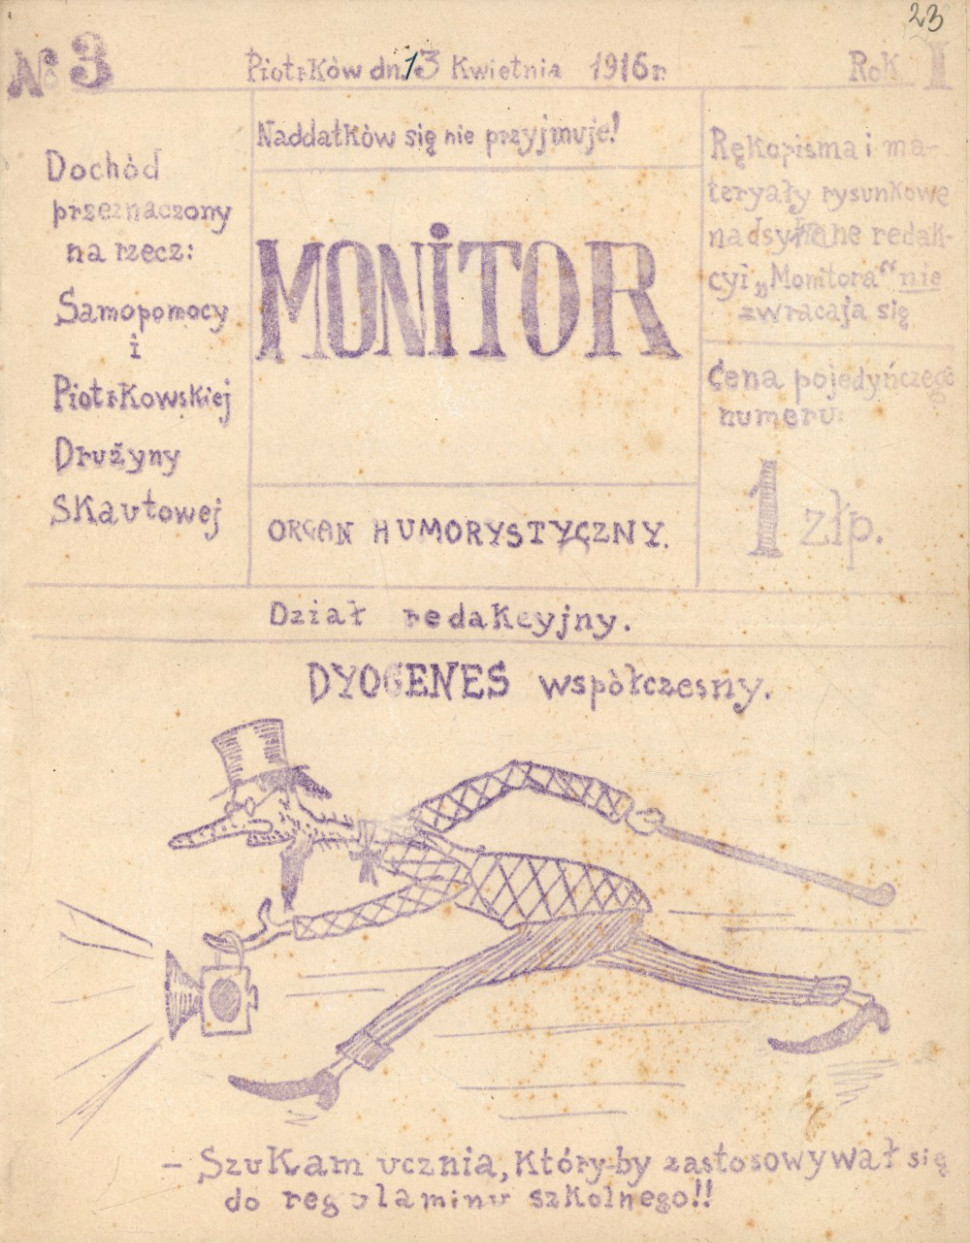 23
№ 3
Piotrków dn. 13 Kwietnia 1916 r.
Rok I
Dochód
przeznaczony
na rzecz:
Samopomocy
i
Piotrkowskiej
Drużyny
Skautowej
Naddatków się nie przyjmuje!
MONiTOR
ORGAN HUMORYSTYCZNY.
Rękopisma i ma-
teryały rysunkowe
nadsyłane redak-
cyi „Monitora" nie
zwracają się
Cena pojedyńczego
numeru:
1 złp.
Dział redakcyjny.
DYOGENES współczesny.
– Szukam ucznia, który-by zastosowywał się
do regulaminu szkolnego!!